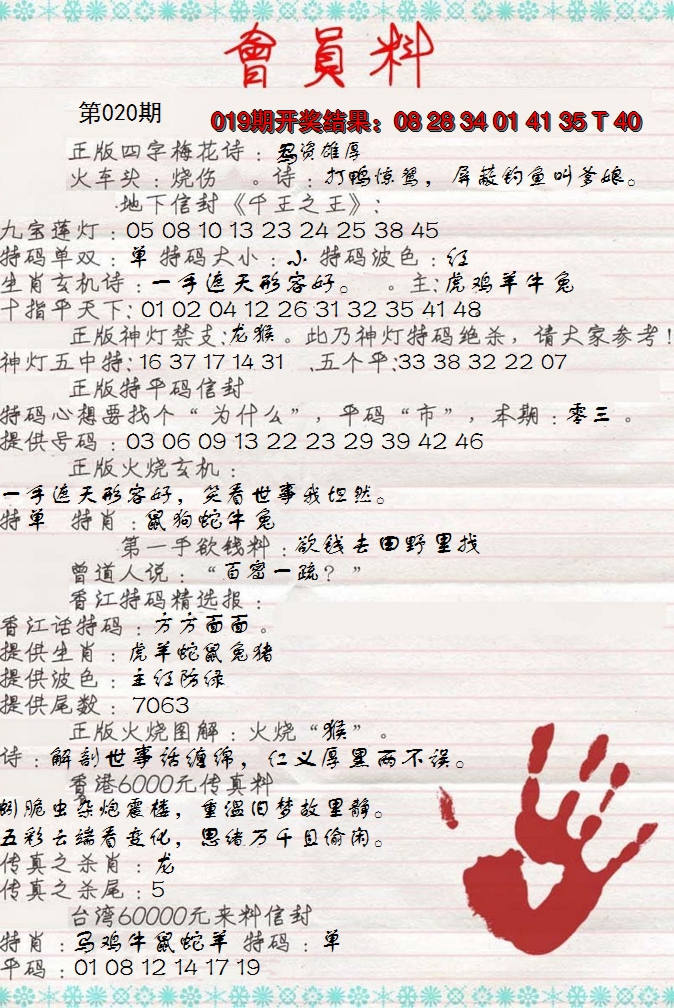 會員料
第020期
019期开奖结果：08 28 34 01 41 35 T 40
正版四字梅花诗：马资雄厚
火车头：烧伤 。诗：打鸭惊鸳，屏蔽钓鱼叫爹娘。
地下信封《千王之王》：
九宝莲灯：05 08 10 13 23 24 25 38 45
特码单双：单 特码大小：小 特码波色：红
生肖玄机诗：一手遮天形容好。 。主：虎鸡羊牛兔
十指平天下：01 02 04 12 26 31 32 35 41 48
正版神灯禁支：龙猴。此乃神灯特码绝杀，请大家参考！
神灯五中特：16 37 17 14 31 .五个平：33 38 32 22 07
正版特平码信封
特码心想要找个“为什么”，平码“市”，本期：零三 。
提供号码：03 06 09 13 22 23 29 39 42 46
正版火烧玄机：
一手遮天形容好，笑看世事我坦然。
特单 特肖：鼠狗蛇牛兔
第一手欲钱料：欲钱去田野里找
曾道人说：“百密一疏？”
香江特码精选报：
香江话特码：方方面面。
提供生肖：虎羊蛇鼠兔猪
提供波色：主红防绿
提供尾数：7063
正版火烧图解：火烧“猴”。
诗：解剖世事话缠绵，仁义厚黑两不误。
香港6000元传真料
脆虫杂炮震楼，重温旧梦故里静。
五彩云端看变化，思绪万千且偷闲。
传真之杀肖：龙
传真之杀尾：5
台湾60000元来料信封
特肖：马鸡牛鼠蛇羊 特码：单
平码：01 08 12 14 17 19